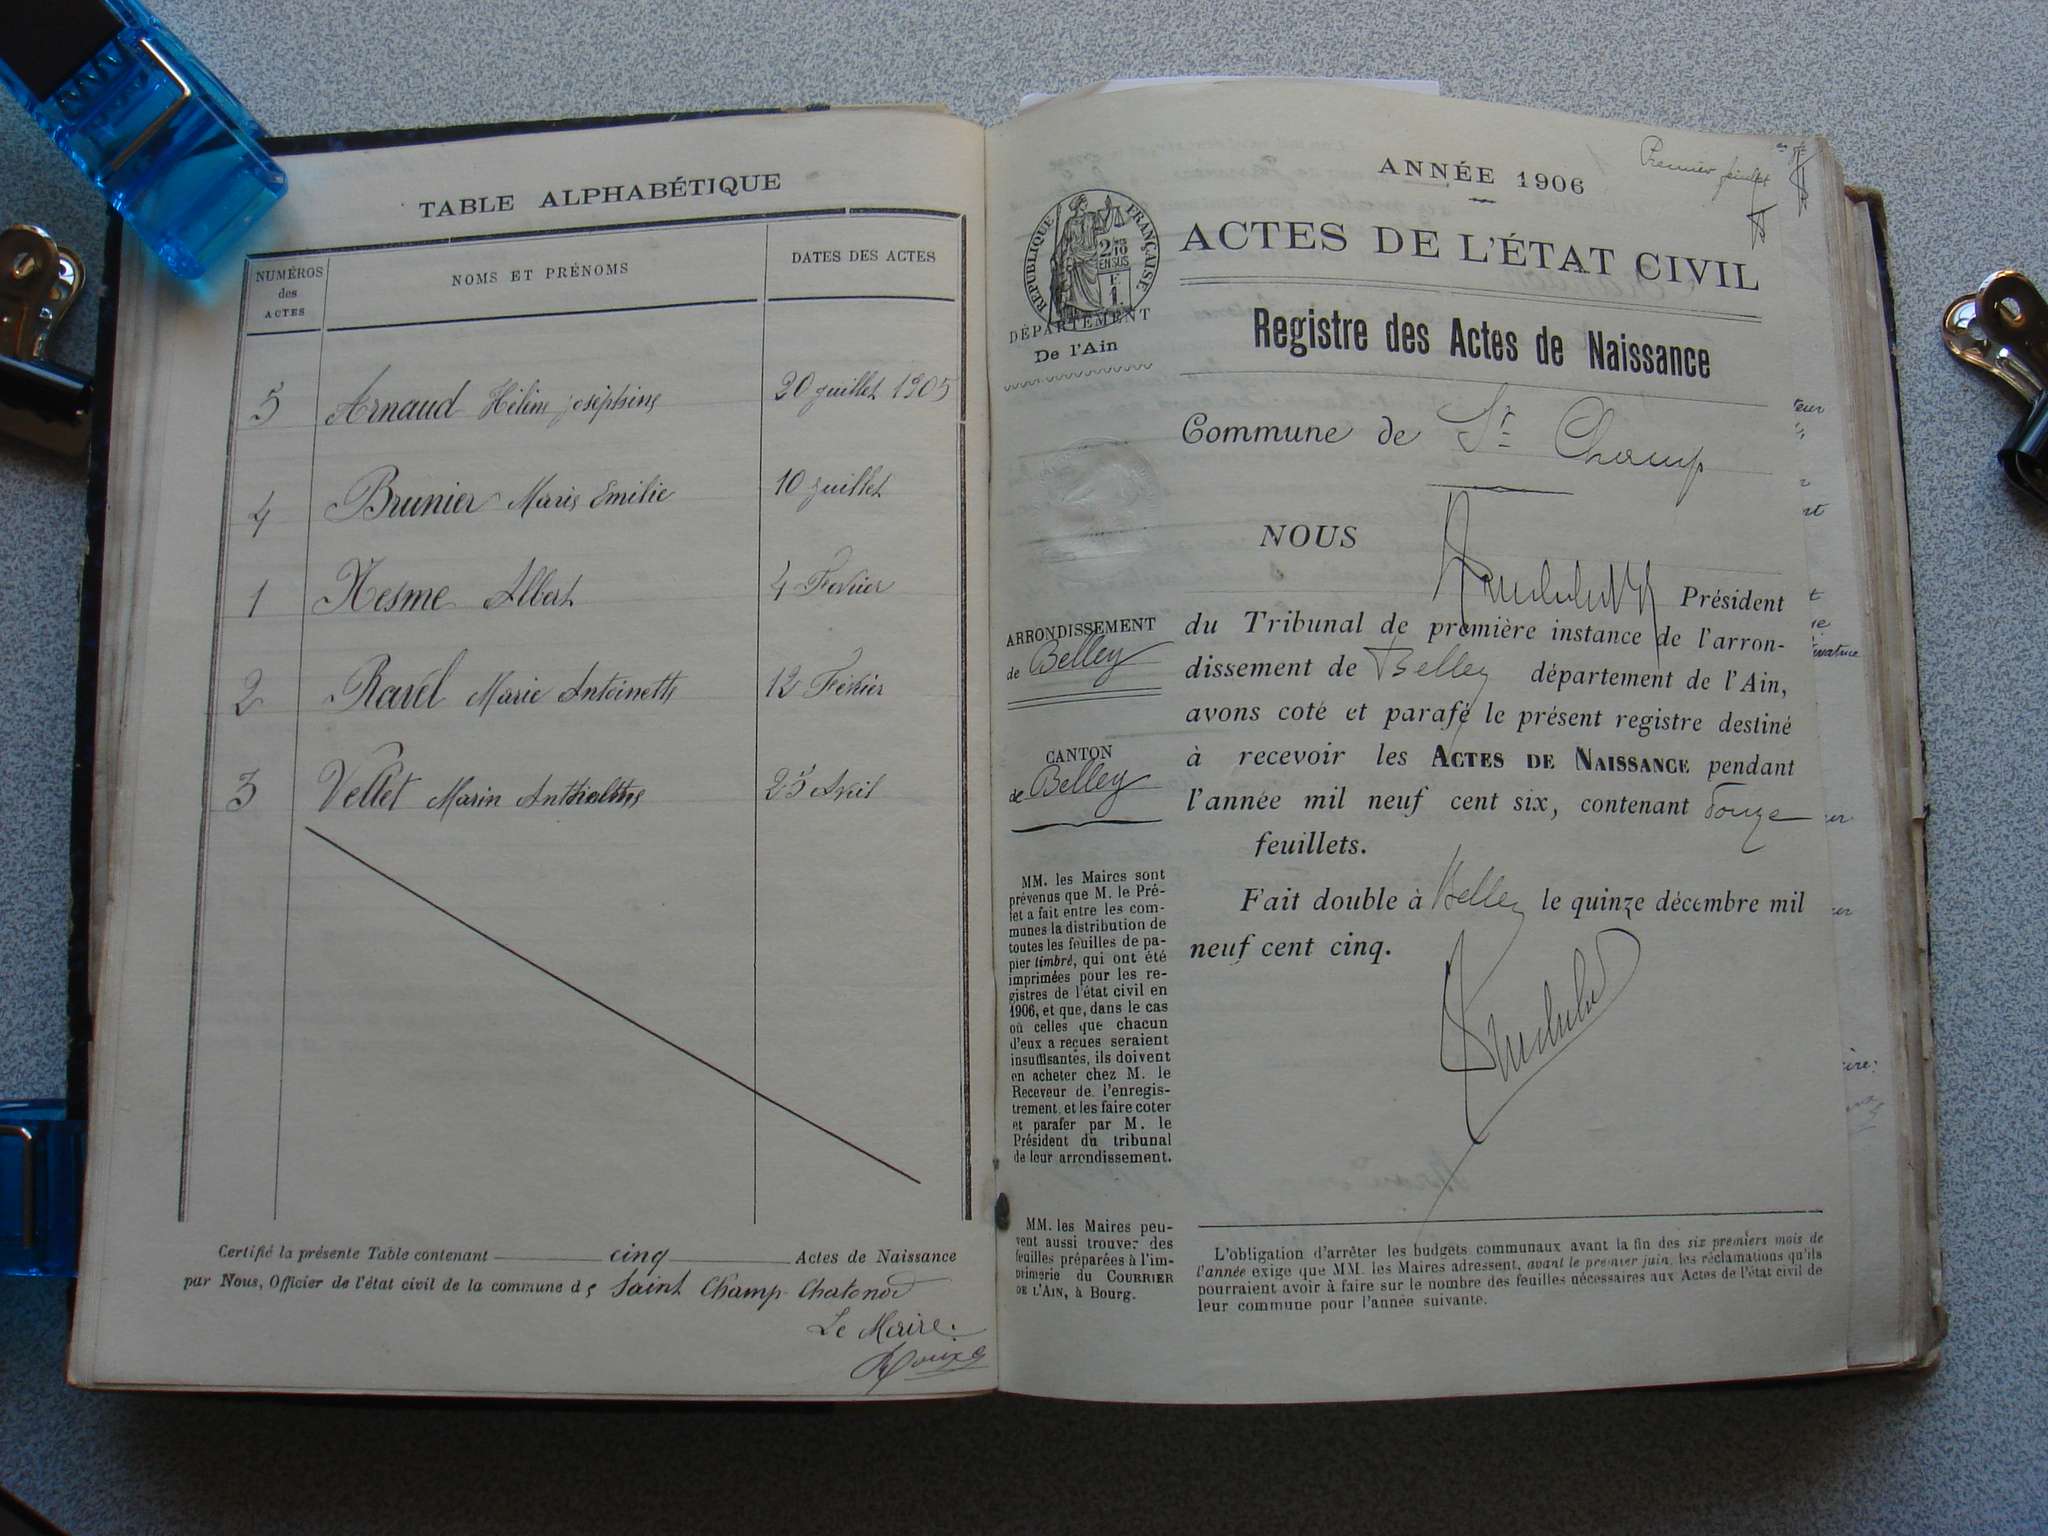 TABLE ALPHABÉTIQUE
NUMÉROS des ACTES
NOMS ET PRÉNOMS
DATES DES ACTES
5 Arnaud Hélène Joséphine 20 juillet 1905
4 Brunier Marie Emilie 10 juillet
1 Nesme Albert 4 Février
2 Ravel Marie Antoinette 12 Février
3 Vellet Marin Anthelme 25 Avril
Certifié la présente Table contenant cinq Actes de Naissance
par Nous, Officier de l'état civil de la commune de Saint Champ-Chatonod
Le Maire.
Roux
Premier feuillet
ANNÉE 1906
ACTES DE L'ÉTAT CIVIL
RÉPUBLIQUE FRANÇAISE
2/10 EN SUS
F 1
DÉPARTEMENT
De l'Ain
Registre des Actes de Naissance
Commune de St Champ
NOUS
Président
ARRONDISSEMENT
de Belley
CANTON
de Belley
du Tribunal de première instance de l'arron-
dissement de Belley département de l'Ain,
avons coté et parafé le présent registre destiné
à recevoir les ACTES DE NAISSANCE pendant
l'année mil neuf cent six, contenant douze
feuillets.
Fait double à Belley le quinze décembre mil
neuf cent cinq.
MM. les Maires sont
prévenus que M. le Pré-
fet a fait entre les com-
munes la distribution de
toutes les feuilles de pa-
pier timbré, qui ont été
imprimées pour les re-
gistres de l'état civil en
1906, et que, dans le cas
où celles que chacun
d'eux a reçues seraient
insuffisantes, ils doivent
en acheter chez M. le
Receveur de l'enregis-
trement, et les faire coter
et parafer par M. le
Président du tribunal
de leur arrondissement.
MM. les Maires peu-
vent aussi trouver des
feuilles préparées à l'im-
primerie du COURRIER
DE L'AIN, à Bourg.
L'obligation d'arrêter les budgets communaux avant la fin des six premiers mois de
l'année exige que MM. les Maires adressent, avant le premier juin, les réclamations qu'ils
pourraient avoir à faire sur le nombre des feuilles nécessaires aux Actes de l'état civil de
leur commune pour l'année suivante.